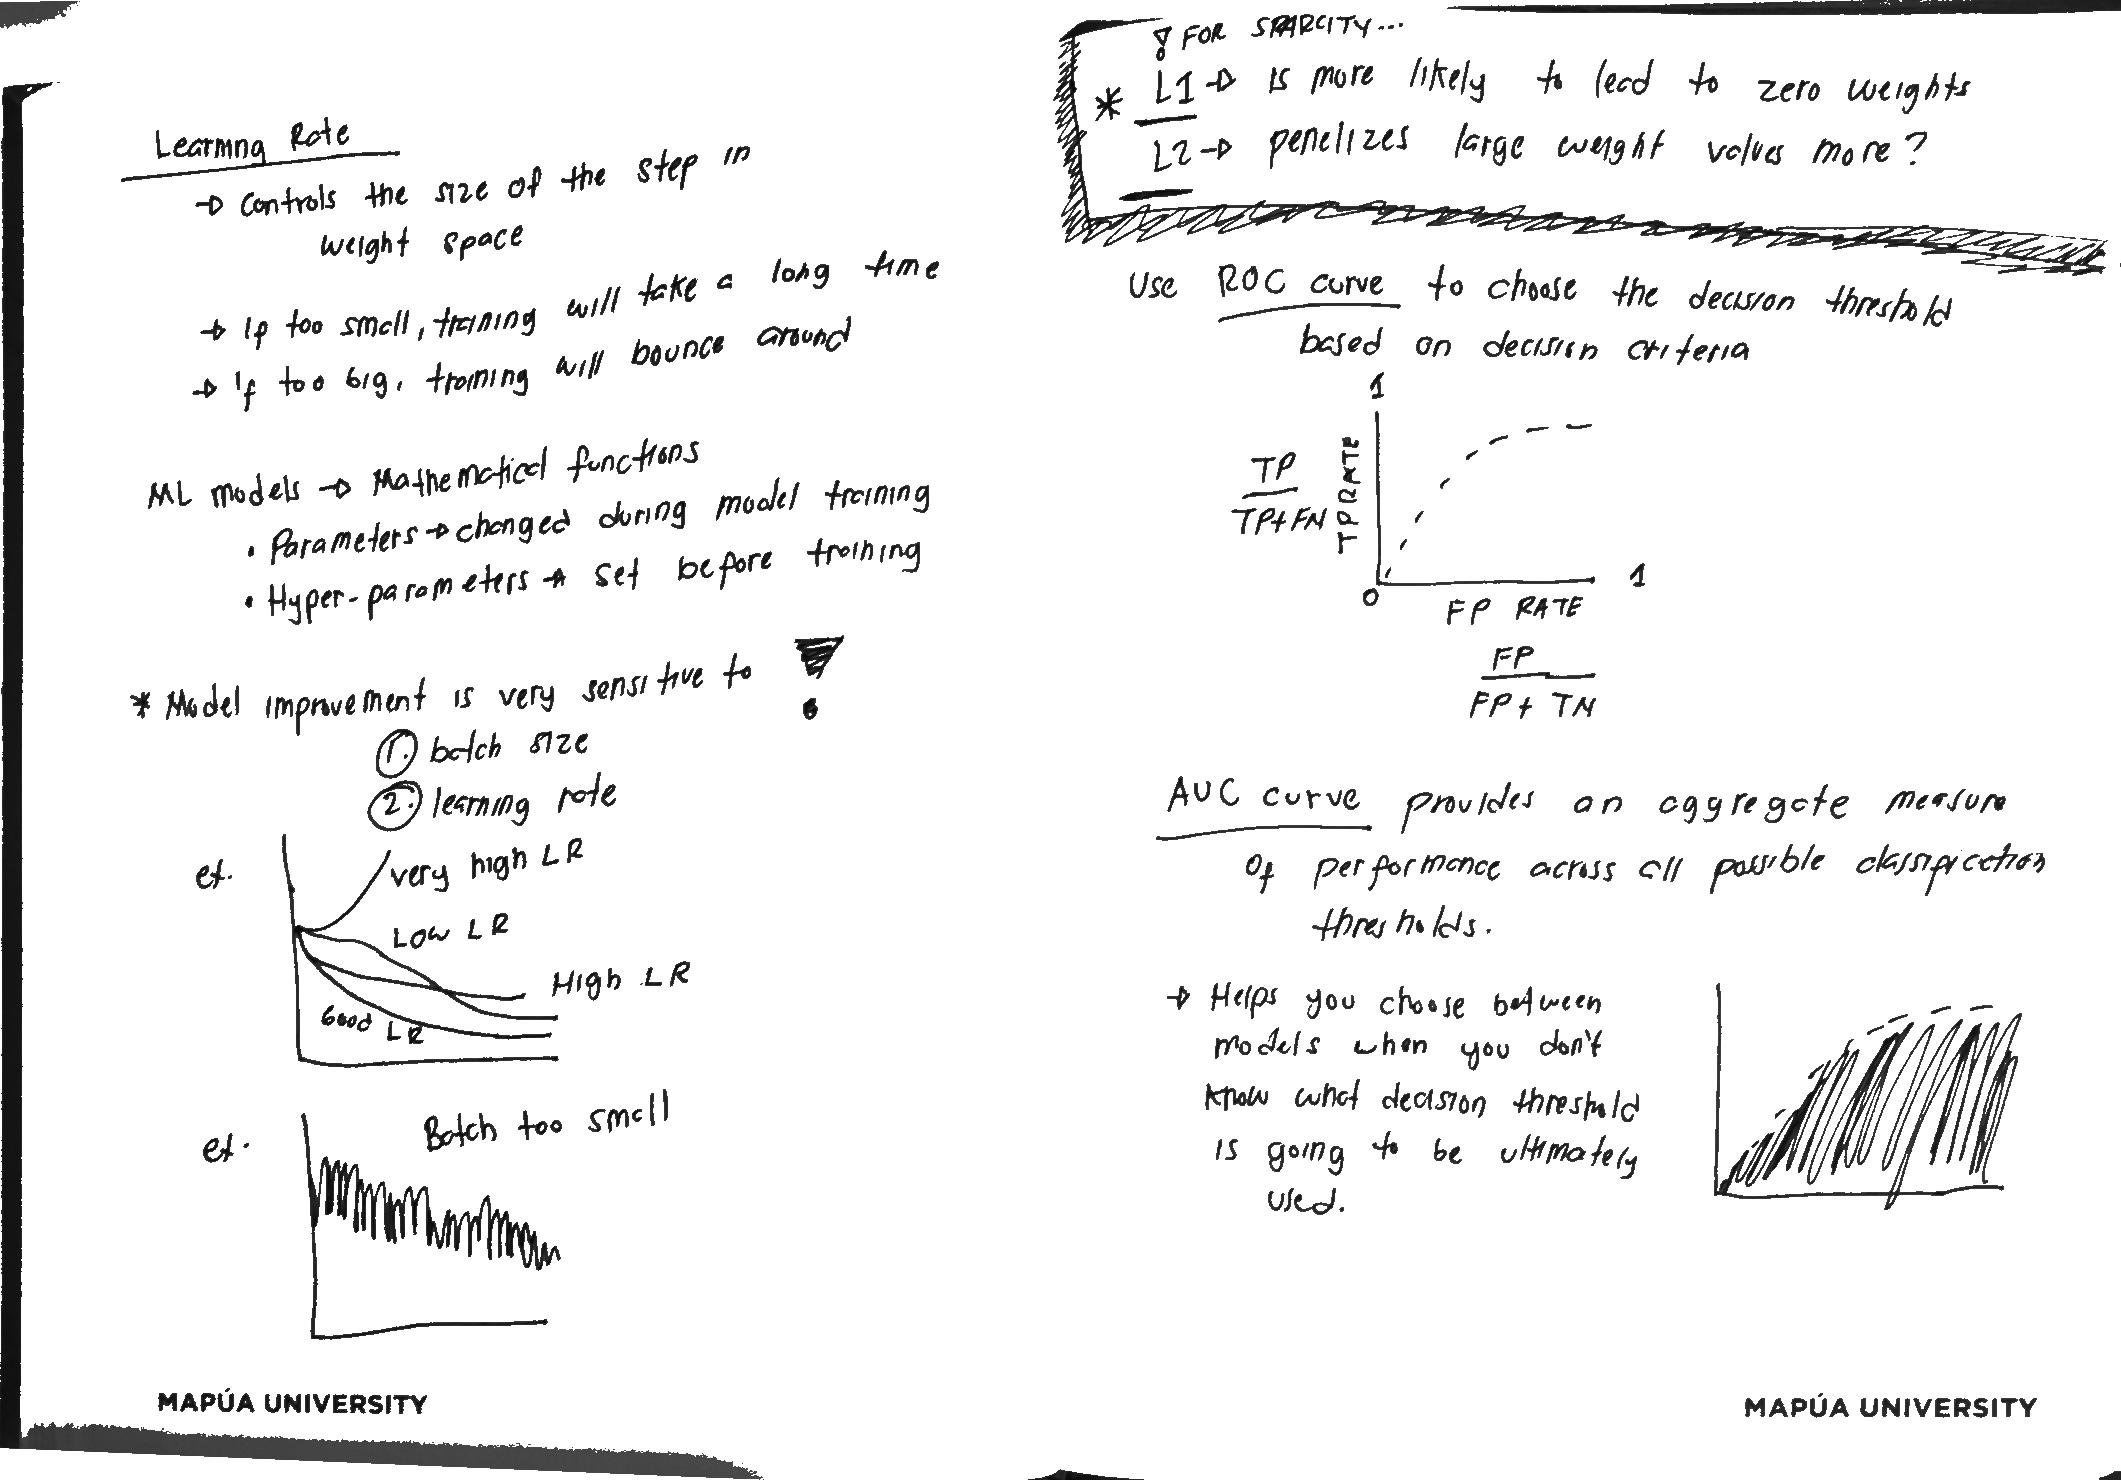 Learning Rate
→ Controls the size of the step in
weight space
→ If too small, training will take a long time
→ If too big, training will bounce around
ML models → Mathematical functions
• Parameters → changed during model training
• Hyper-parameters → set before training
* Model improvement is very sensitive to
1. batch size
2. learning rate
ex.
very high LR
Low LR
High LR
Good LR
ex.
Batch too small
MAPÚA UNIVERSITY
! FOR SPARCITY...
* L1 → is more likely to lead to zero weights
L2 → penelizes large weight values more?
Use ROC curve to choose the decision threshold
based on decision criteria
1
TP
TP+FN
TP RATE
0
1
FP RATE
FP
FP + TN
AUC curve provides an aggregate measure
Of performance across all possible classification
thresholds.
→ Helps you choose between
models when you don't
know what decision threshold
is going to be ultimately
used.
MAPÚA UNIVERSITY